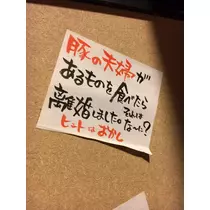 豚の夫婦が
あるものを食べたら
離婚しました。それはなーに?
ヒントはおかし